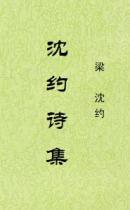 沈约诗集
梁 沈约